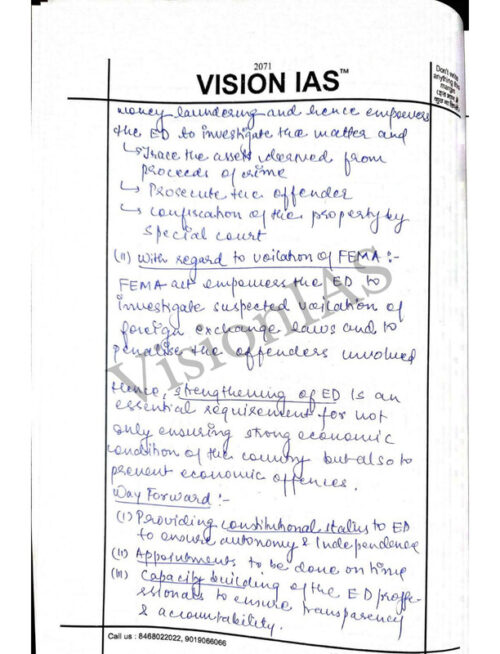 2071
VISION IAS™
Don't write
anything this
margin
money laundering and hence empowers
the ED to investigate the matter and
↳ Trace the assets derived from
proceeds of crime
↳ Prosecute the offender
↳ confiscation of the property by
special court
(II) With regard to voilation of FEMA :-
FEMA act empowers the ED to
investigate suspected voilation of
foreign exchange laws and to
penalise the offenders involved
Hence, strengthening of ED is an
essential requirement for not
only ensuring strong economic
condition of the country but also to
prevent economic offences.
Way Forward :-
(I) Providing constitutional status to ED
to ensure autonomy & Independence
(II) Appointments to be done on time
(III) Capacity building of the ED proffe-
ssionals to ensure transparency
& accountability.
VisionIAS
Call us : 8468022022, 9019066066